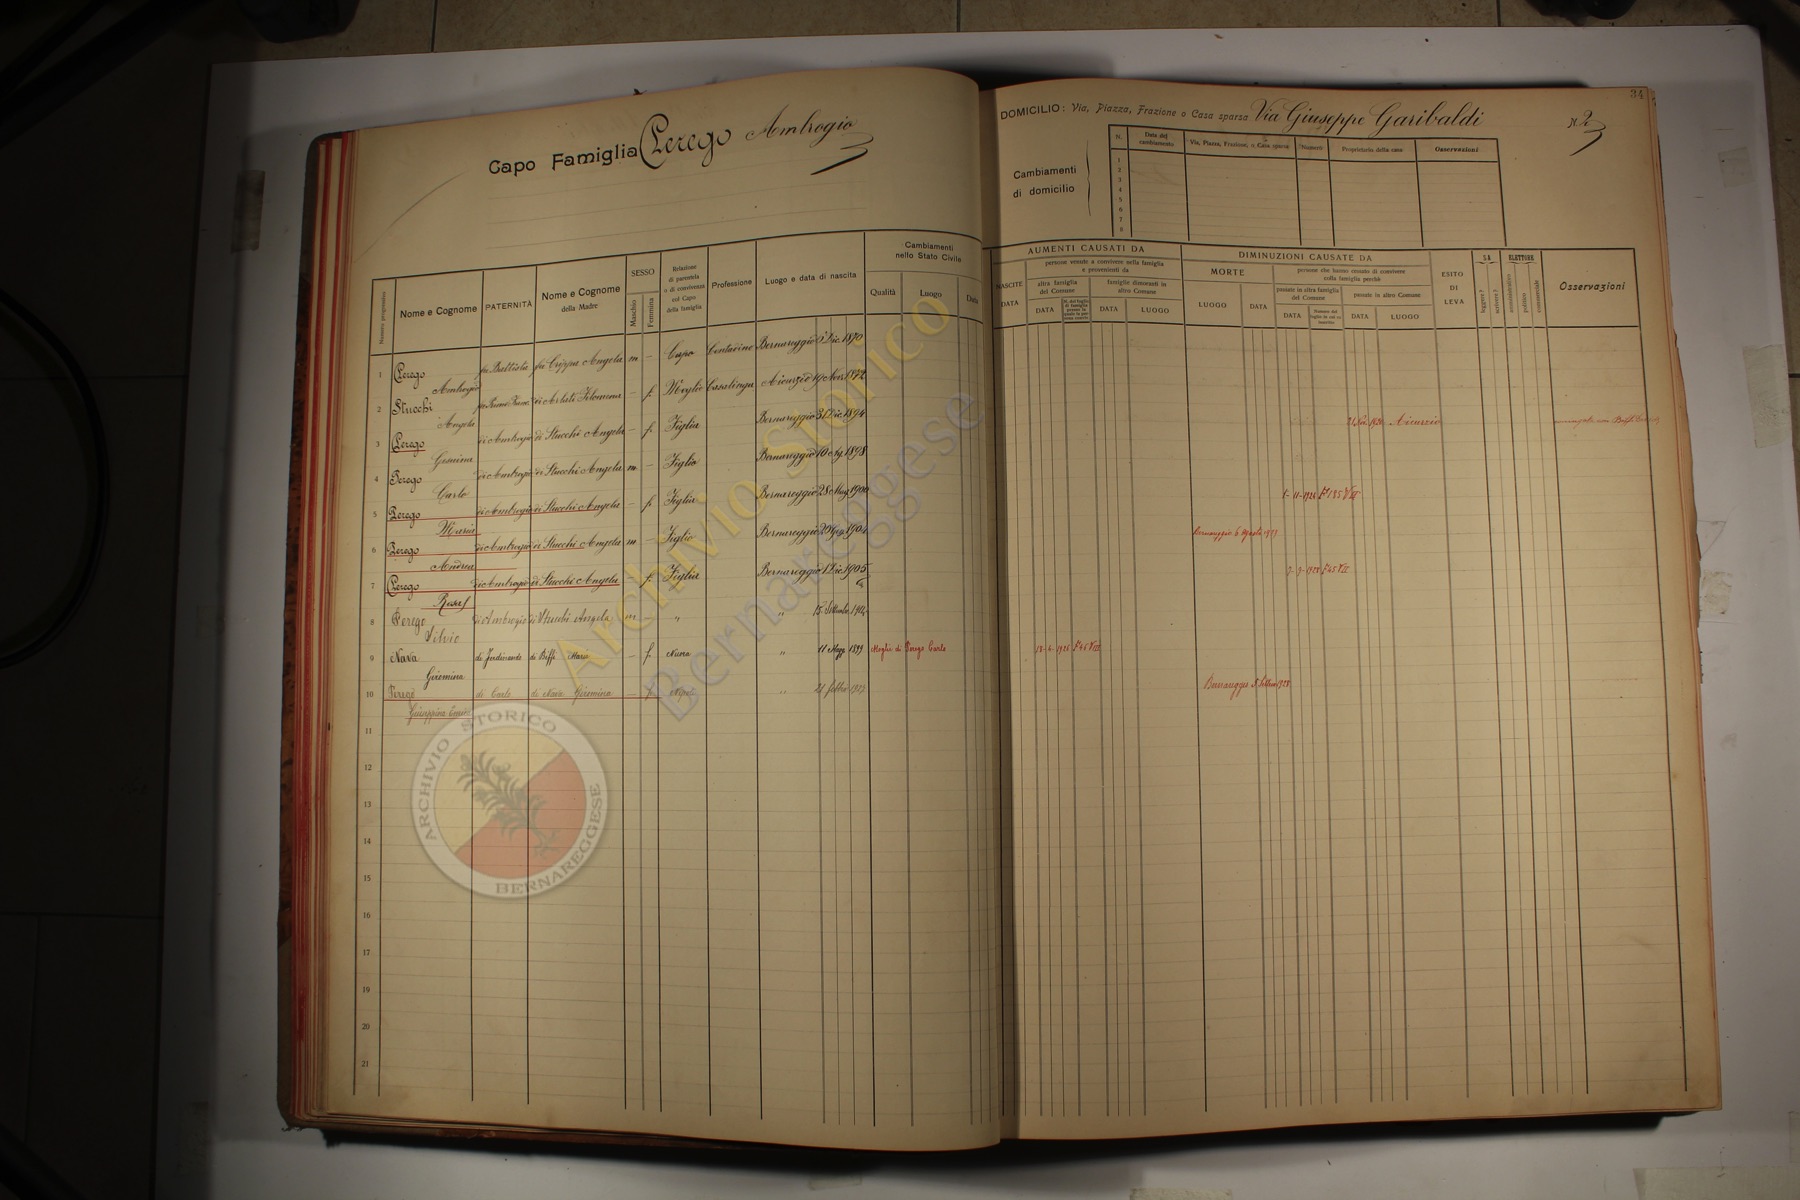 34
Capo Famiglia Perego Ambrogio
DOMICILIO: Via, Piazza, Frazione o Casa sparsa Via Giuseppe Garibaldi N. 2
Cambiamenti di domicilio
N. Data del cambiamento Via, Piazza, Frazione, o Casa sparsa Numero Proprietario della casa Osservazioni
1
2
3
4
5
6
7
8
Numero progressivo Nome e Cognome PATERNITÀ Nome e Cognome della Madre SESSO Maschio Femmina Relazione di parentela o di convivenza col Capo della famiglia Professione Luogo e data di nascita Cambiamenti nello Stato Civile Qualità Luogo Data
AUMENTI CAUSATI DA
NASCITE DATA
persone venute a convivere nella famiglia e provenienti da
altra famiglia del Comune DATA
famiglie dimoranti in altro Comune DATA LUOGO
DIMINUZIONI CAUSATE DA
MORTE LUOGO DATA
persone che hanno cessato di convivere colla famiglia perchè
passate in altra famiglia del Comune DATA
passate in altro Comune DATA LUOGO
ESITO DI LEVA
SA leggere? scrivere?
ELETTORE amministrativo politico commerciale
Osservazioni
1 Perego Ambrogio fu Battista fu Crippa Angela m – Capo Contadino Bernareggio Dic. 1870
2 Stucchi Angela di Arlati Filomena – f. Moglie Casalinga Aicurzio 19 Nov. 1872
3 Perego Gesuina di Ambrogio di Stucchi Angela – f. Figlia Bernareggio 31 Dic. 1894 1920 Aicurzio
4 Perego Carlo di Ambrogio di Stucchi Angela m – Figlio Bernareggio 10 Ag. 1898
5 Perego Maria di Ambrogio di Stucchi Angela – f. Figlia Bernareggio 28 Mag 1900 1-11-1926 F° 135 VII
6 Perego Andrea di Ambrogio di Stucchi Angela m – Figlio Bernareggio 20 1904 Bernareggio 6 Agosto
7 Perego Rosa di Ambrogio di Stucchi Angela – f. Figlia Bernareggio 1 Dic 1905 1928 F° 45 VII
8 Perego Silvio di Ambrogio di Stucchi Angela m „ „ 15 Settembre
9 Nava Giromina di Ferdinando di Biffi Maria – f. Nuora „ 11 Magg. 1899 Moglie di Perego Carlo 18-4-1926 F° 46 VIII
10 Perego Giuseppina di Carlo di Nava Giromina – f. Nipote „ 21 febbr. 1927 Bernareggio 5 Settem 1928
11
12
13
14
15
16
17
18
19
20
21
Archivio Storico
Bernareggese
ARCHIVIO STORICO
BERNAREGGESE